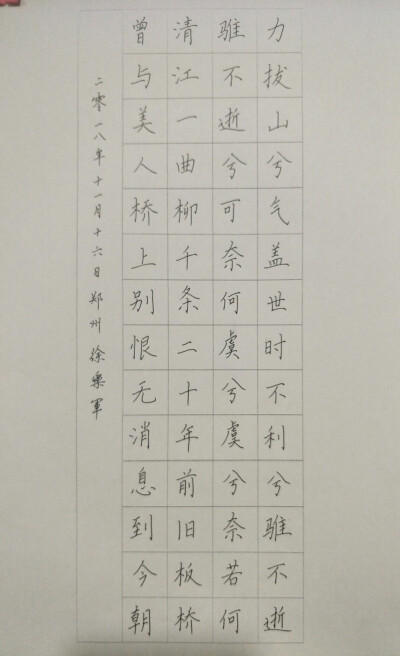 力拔山兮气盖世时不利兮骓不逝
骓不逝兮可奈何虞兮虞兮奈若何
清江一曲柳千条二十年前旧板桥
曾与美人桥上别恨无消息到今朝
二零一八年十一月十六日郑州徐乐军